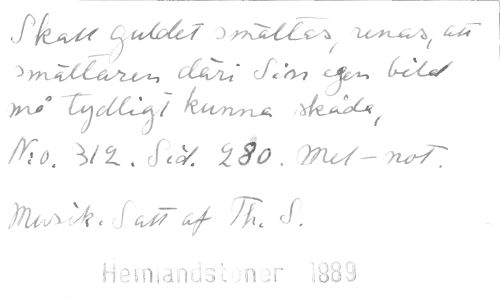 Skall guldet smältas, renas, att
smältaren däri Sin egen bild
må tydligt kunna skåda,
N:o. 312. Sid. 280. Mel-not.
Musik. Satt af Th. S.
Hemlandstoner 1889